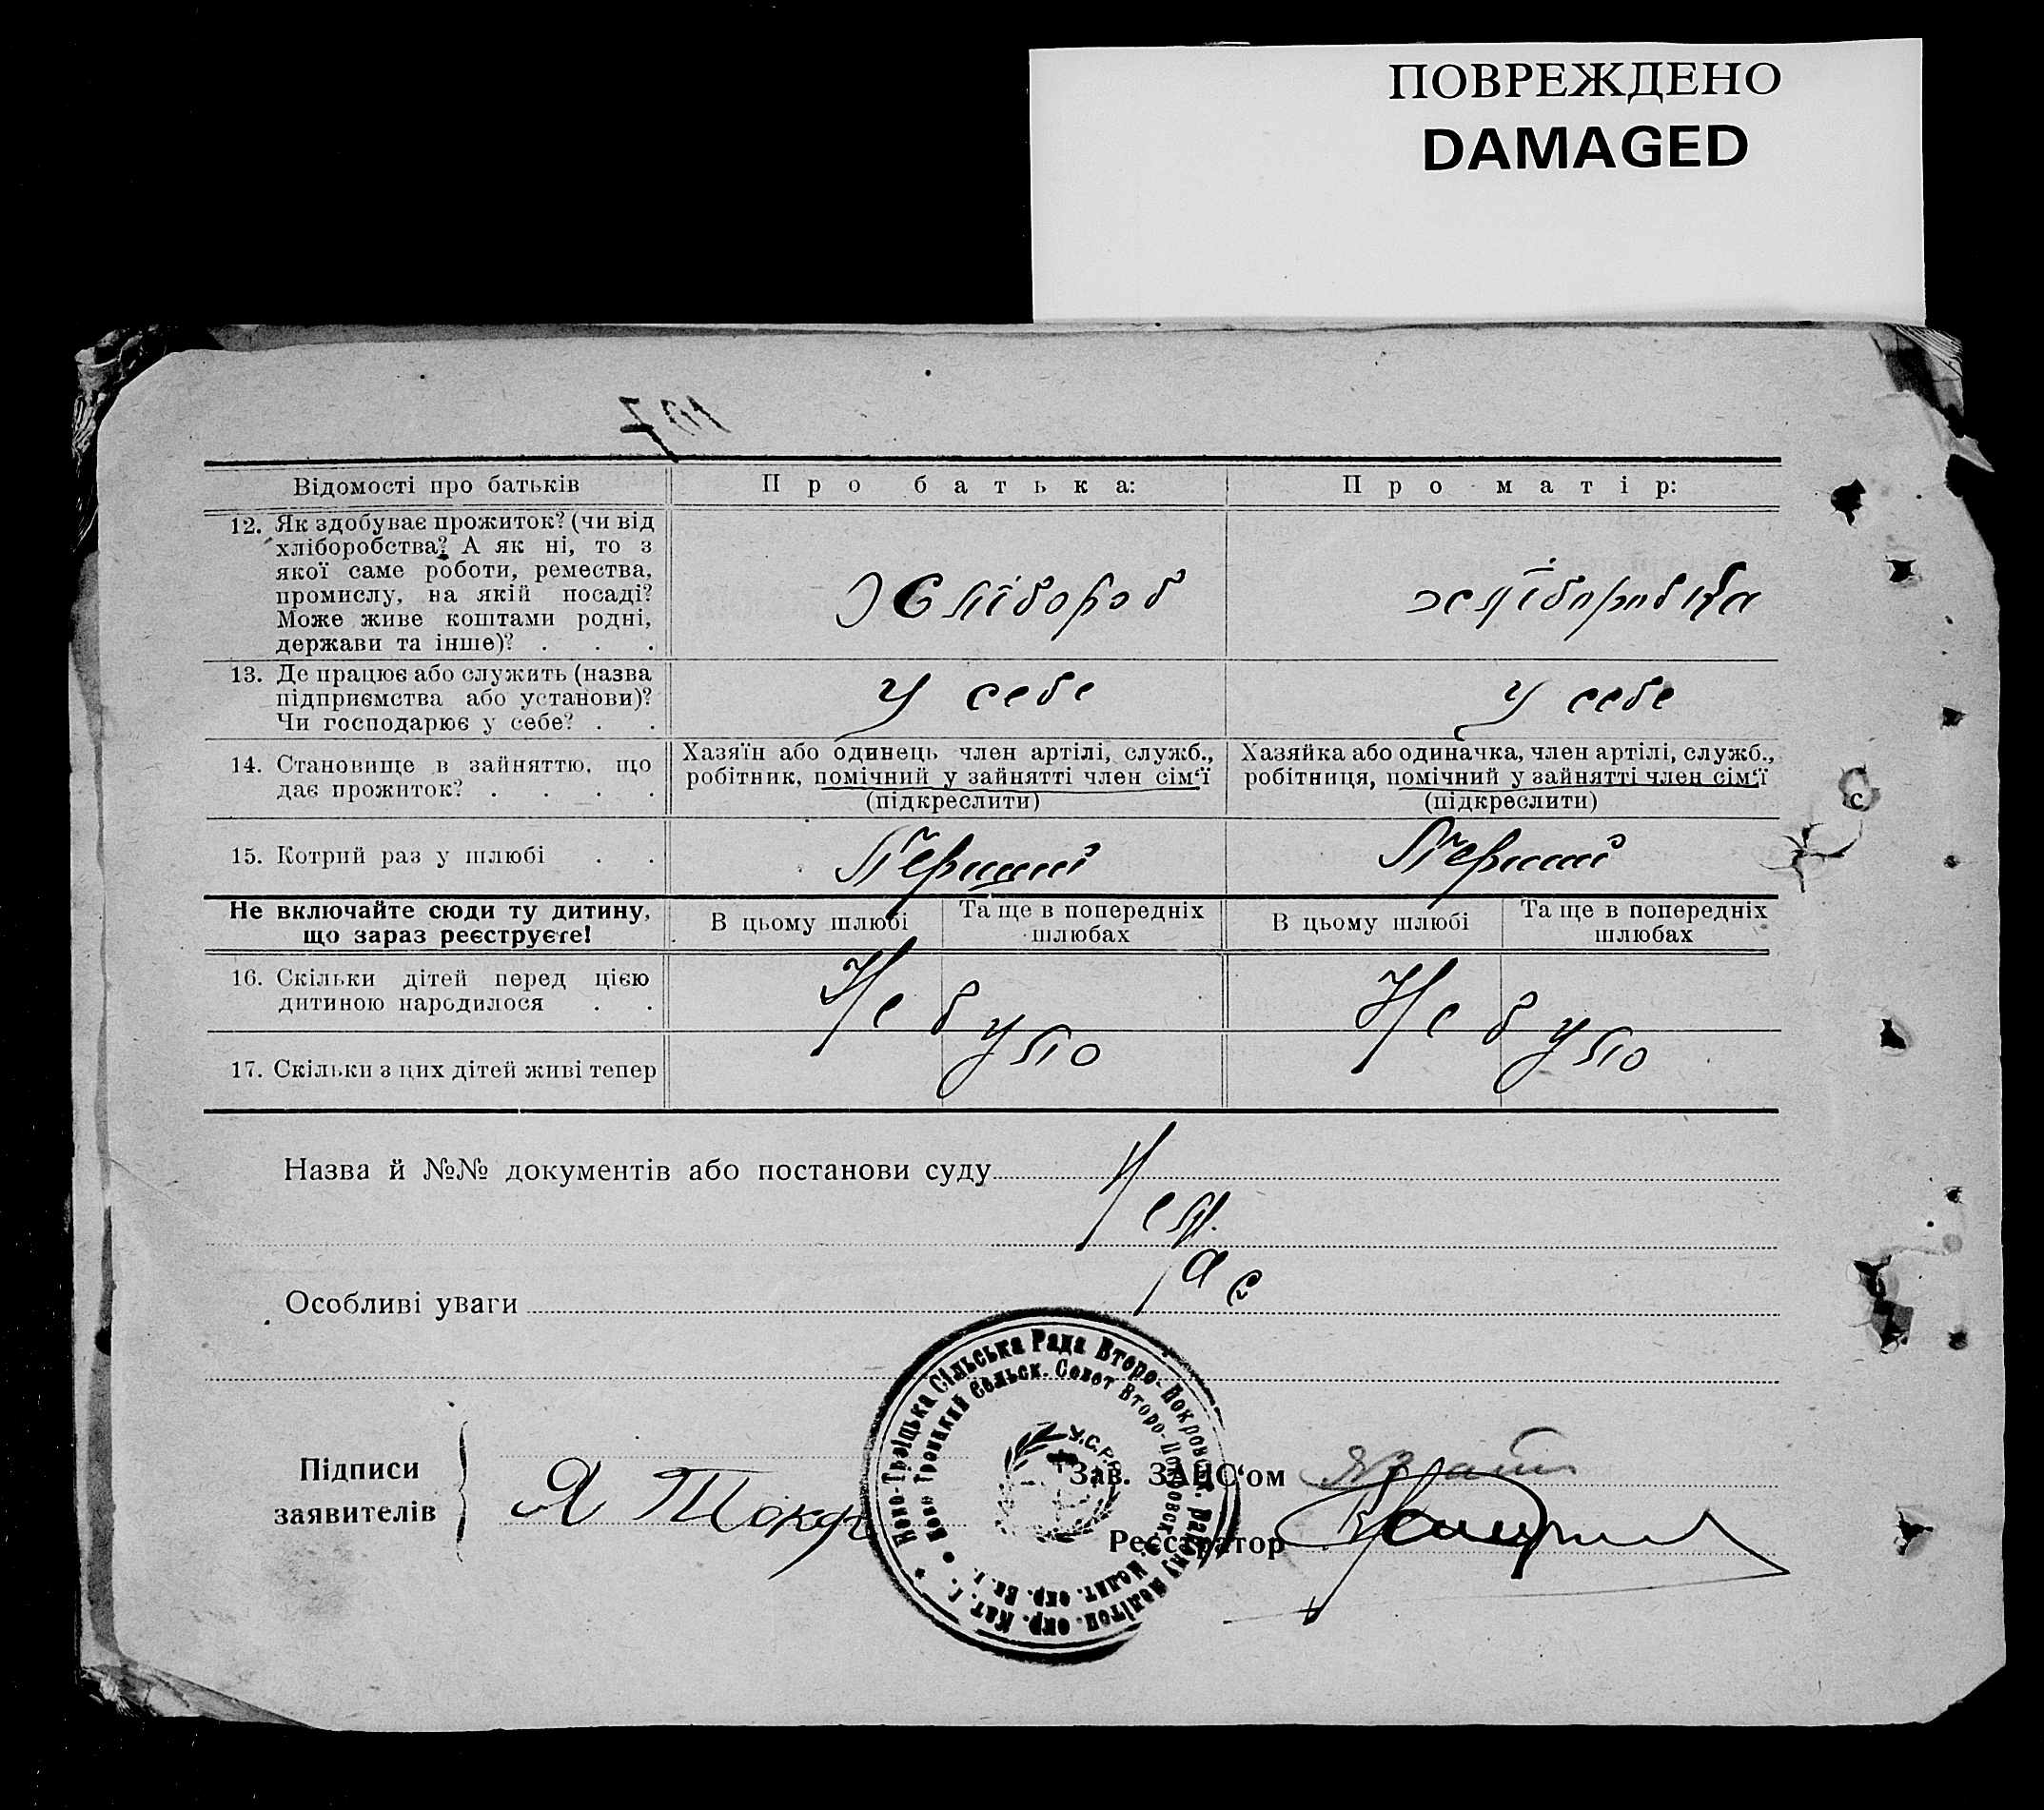 ПОВРЕЖДЕНО
DAMAGED
107
Відомості про батьків
Про батька:
Про матір:
12. Як здобуває прожиток? (чи від
хліборобства? А як ні, то з
якої саме роботи, ремества,
промислу, на якій посаді?
Може живе коштами родні,
держави та інше)? . . .
Хлібороб
хліборобка
13. Де працює або служить (назва
підприємства або установи)?
Чи господарює у себе? . .
У себе
У себе
14. Становище в зайняттю, що
дає прожиток? . . . .
Хазяїн або одинець член артілі, служб.,
робітник, помічний у зайнятті член сім'ї
(підкреслити)
Хазяйка або одиначка, член артілі, служб.,
робітниця, помічний у зайнятті член сім'ї
(підкреслити)
15. Котрий раз у шлюбі . .
Перший
Перший
Не включайте сюди ту дитину,
що зараз реєструєте!
В цьому шлюбі
Та ще в попередніх
шлюбах
В цьому шлюбі
Та ще в попередніх
шлюбах
16. Скільки дітей перед цією
дитиною народилося . .
17. Скільки з цих дітей живі тепер
Не було
Не було
Назва й №№ документів або постанови суду
Немає
Особливі уваги
Ново-Троїцька Сільська Рада Второ-Покровськ. району Мелітоп. окр. Кат. г.
Ново Троицкий Сельск. Совет Второ-Покровск. Мелит. окр. Ек. г.
У.С.Р.Р.
Підписи
заявителів
Я Токар
Зав. ЗАГС'ом
Реєстратор